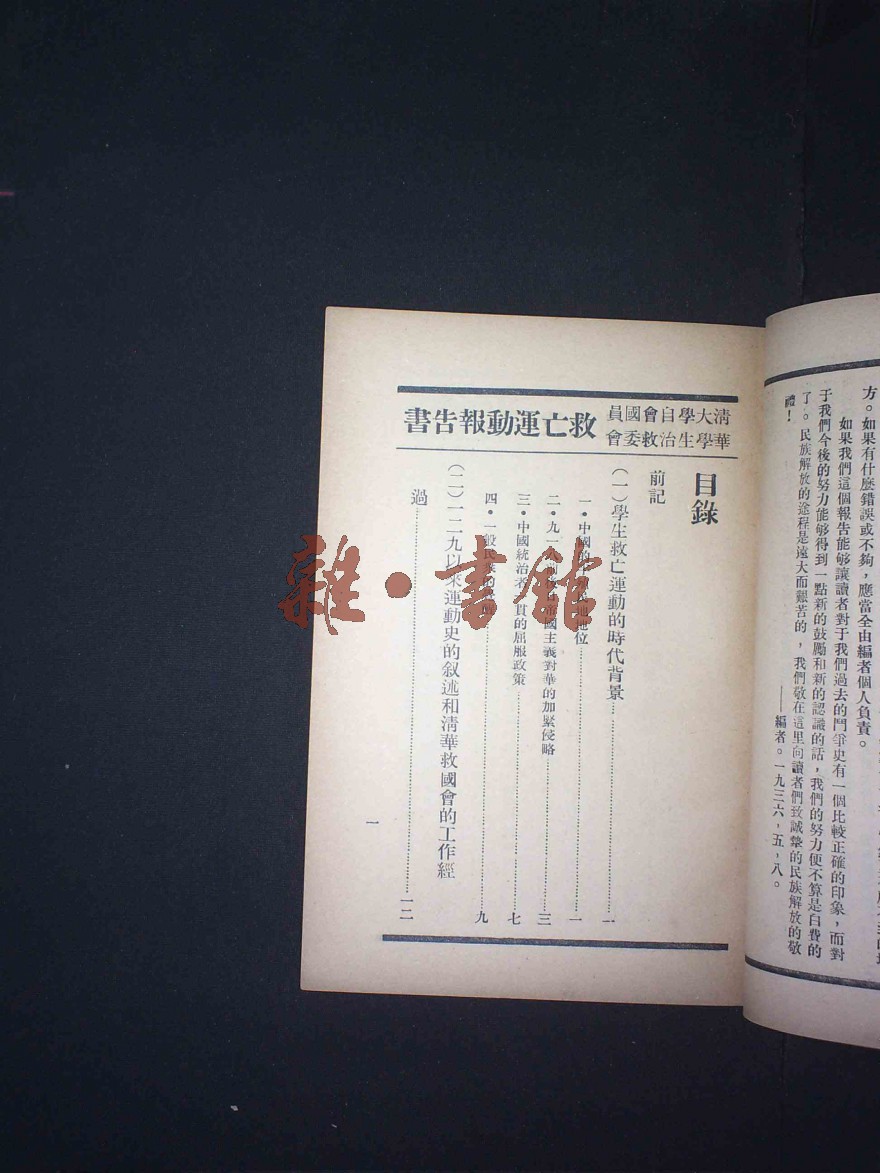 方。如果有什麽錯誤或不夠，應當全由編者個人負責。
如果我們這個報告能够讓讀者對于我們過去的鬥爭史有一個比較正確的印象，而對
于我們今後的努力能够得到一點新的鼓勵和新的認識的話，我們的努力便不算是白費的
了。民族解放的途程是遠大而艱苦的，我們敬在這里向讀者們致誠摯的民族解放的敬
禮！
——編者。一九三六，五，八。
清華大學學生自治會救國委員會
救亡運動報告書
目錄
前記
（一）學生救亡運動的時代背景……一
一・中國的地地位……一
二・九一八帝國主義對華的加緊侵略……三
三・中國統治者一貫的屈服政策……七
四・一般民衆的……九
（二）一二九以來運動史的叙述和清華救國會的工作經
過……一二
一
雜・書館